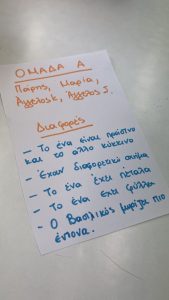 ΟΜΑΔΑ Α
Πάρης, Μαρία,
Άγγελος Κ, Άγγελος Σ.
Διαφορές
- Το ένα είναι πράσινο
και το άλλο κόκκινο
- Έχουν διαφορετικό σχήμα
- Το ένα έχει πέταλα
- Το ένα έχει φύλλα
- Ο Βασιλικός μυρίζει πιο
έντονα.